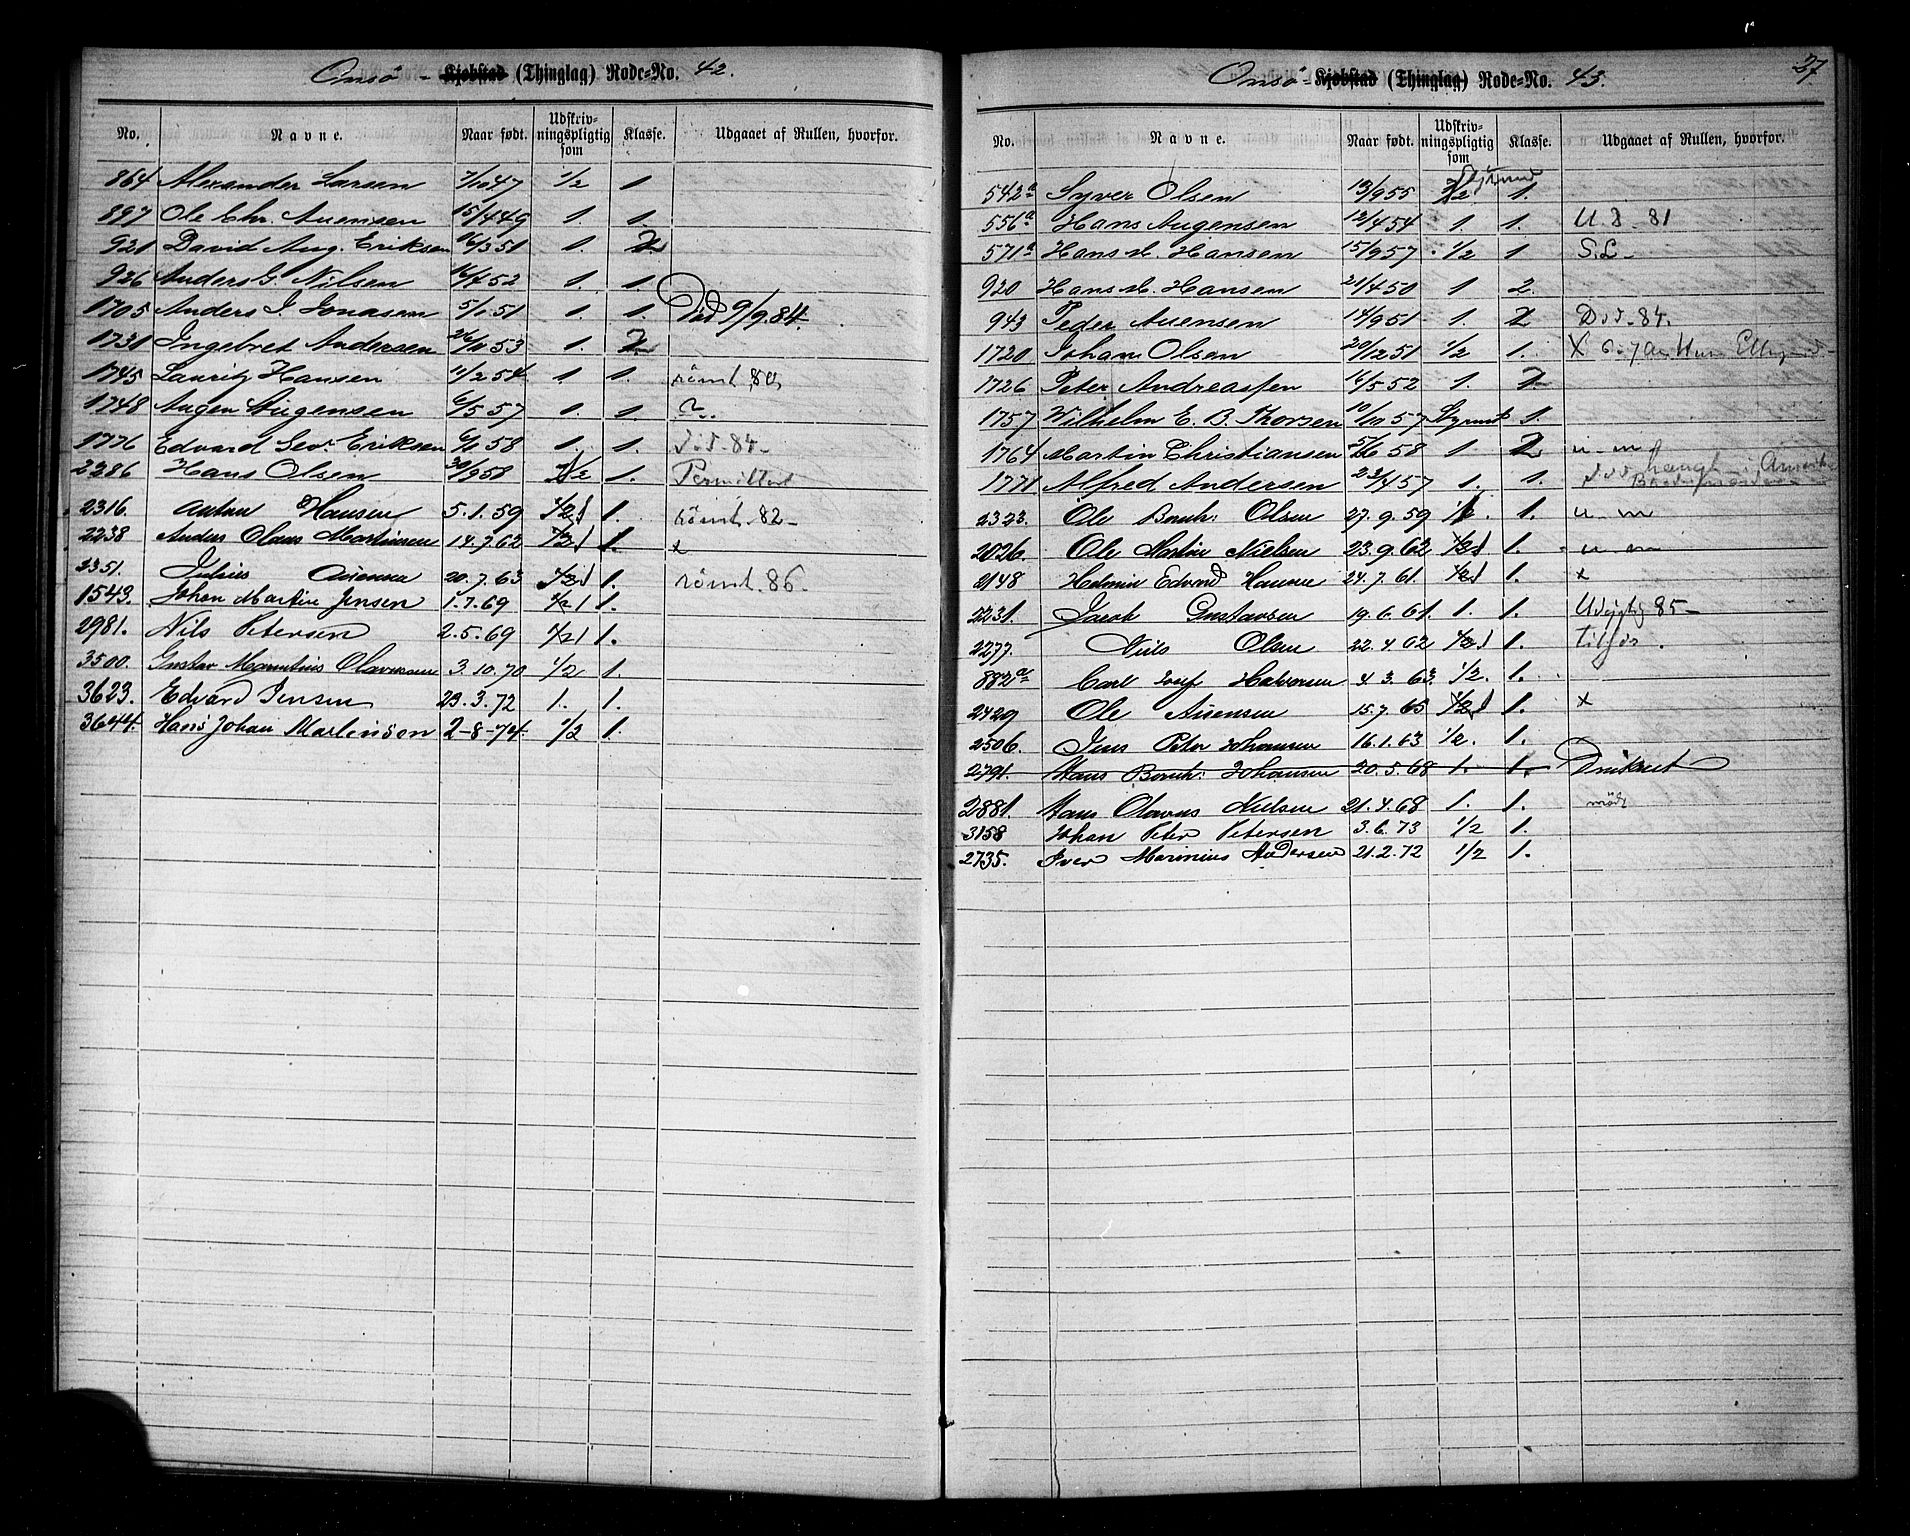 Onsö - Kjøbstad (Thinglag) Rode-No. 42.
No. Navne. Naar født. Udskrivningspligtig som Klasse. Udgaaet af Rullen, hvorfor.
864 Alexander Larsen 7/10 47 1/2 1
897 Ole Chr. Auensen 15/4 49 1. 1.
921 David Aug. Eriksen 16/3 51 1. 2.
926 Anders G. Nilsen 16/7 52 1. 1.
1705 Anders J. Jonasen 5/1 51 1. 1. Död 9/9.84.
1731 Ingebret Andersen 26/11 53 1. 2.
1745 Lauritz Hansen 11/2 54 1. 1. römt 80,
1748 Augen Augensen 6/5 57 1. 1.
1776 Edvard Sev. Eriksen 6/11 58 1. 1. död 84-
2286 Hans Olsen 30/9 58 1/2 1. Permittert
2316 Anton Hansen 5.1.59 1/2 1 1. römt 82-
2238 Anders Olaus Martinsen 14.7.62 1/2 1 1. x
2351. Julius Auensen 20.7.63 1/2 1 1. römt 86-
1543. Johan Martin Jensen 1.7.69 1/2 1 1.
2981. Nils Petersen 2.5.69 1/2 1 1.
3500. Gustav Mauritius Olavesen 3.10.70 1/2 1.
3623. Edvard Jensen 23.3.72 1. 1.
3644. Hans Johan Martinsen 2-8-74. 1/2 1.
27
Onsö - Kjøbstad (Thinglag) Rode-No. 43.
No. Navne. Naar født. Udskrivningspligtig som Klasse. Udgaaet af Rullen, hvorfor.
542a Syver Olsen 13/9 55 1/2 Styrmd 1.
556a Hans Augensen 12/4 54 1. 1. U.D - 81
571a Hans M. Hansen 15/9 57 1/2 1 S.L-
920 Hans M. Hansen 21/4 50 1 2.
943 Peder Auensen 14/9 51 1. 2 Död-84.
1720 Johan Olsen 20/12 51 1/2 1. X
1726 Peter Andreassen 16/5 52 1. 2
1757 Wilhelm E. B. Thorsen 10/10 57 Styrmd 1.
1764 Martin Christiansen 5/6 58 1 2 u-m
1771 Alfred Andersen 23/4 57 1. 1. död i Amerika
2323. Ole Bernh: Olsen 27.9.59 1/2. 1. u-m
2026. Ole Martin Nielsen 23.9.62 1/2 1 1. u-m
2148 Helmin Edvard Hansen 24.7.61. 1/2 1 1. x
2231. Jacob Gustavsen 19.6.61. 1. 1. Udygtig 85-
2277. Niels Olsen 22.4.62 1/2 1 1. tilsjös.
882a Carl Josef Halvorsen 4.3.63. 1/2. 1.
2429 Ole Auensen 15.7.65 1/2 1 1. x
2506. Jens Peter Johansen 16.1.63 1/2. 1.
2791. Hans Bernh: Johansen 20.5.68 1. 1. Druknet
2881. Hans Olavus Nielsen 21.4.68 1. 1. mödt
3158 Johan Peter Petersen 3.6.73 1/2 1.
2735. Iver Marinius Andersen 21.2.72 1/2 1.